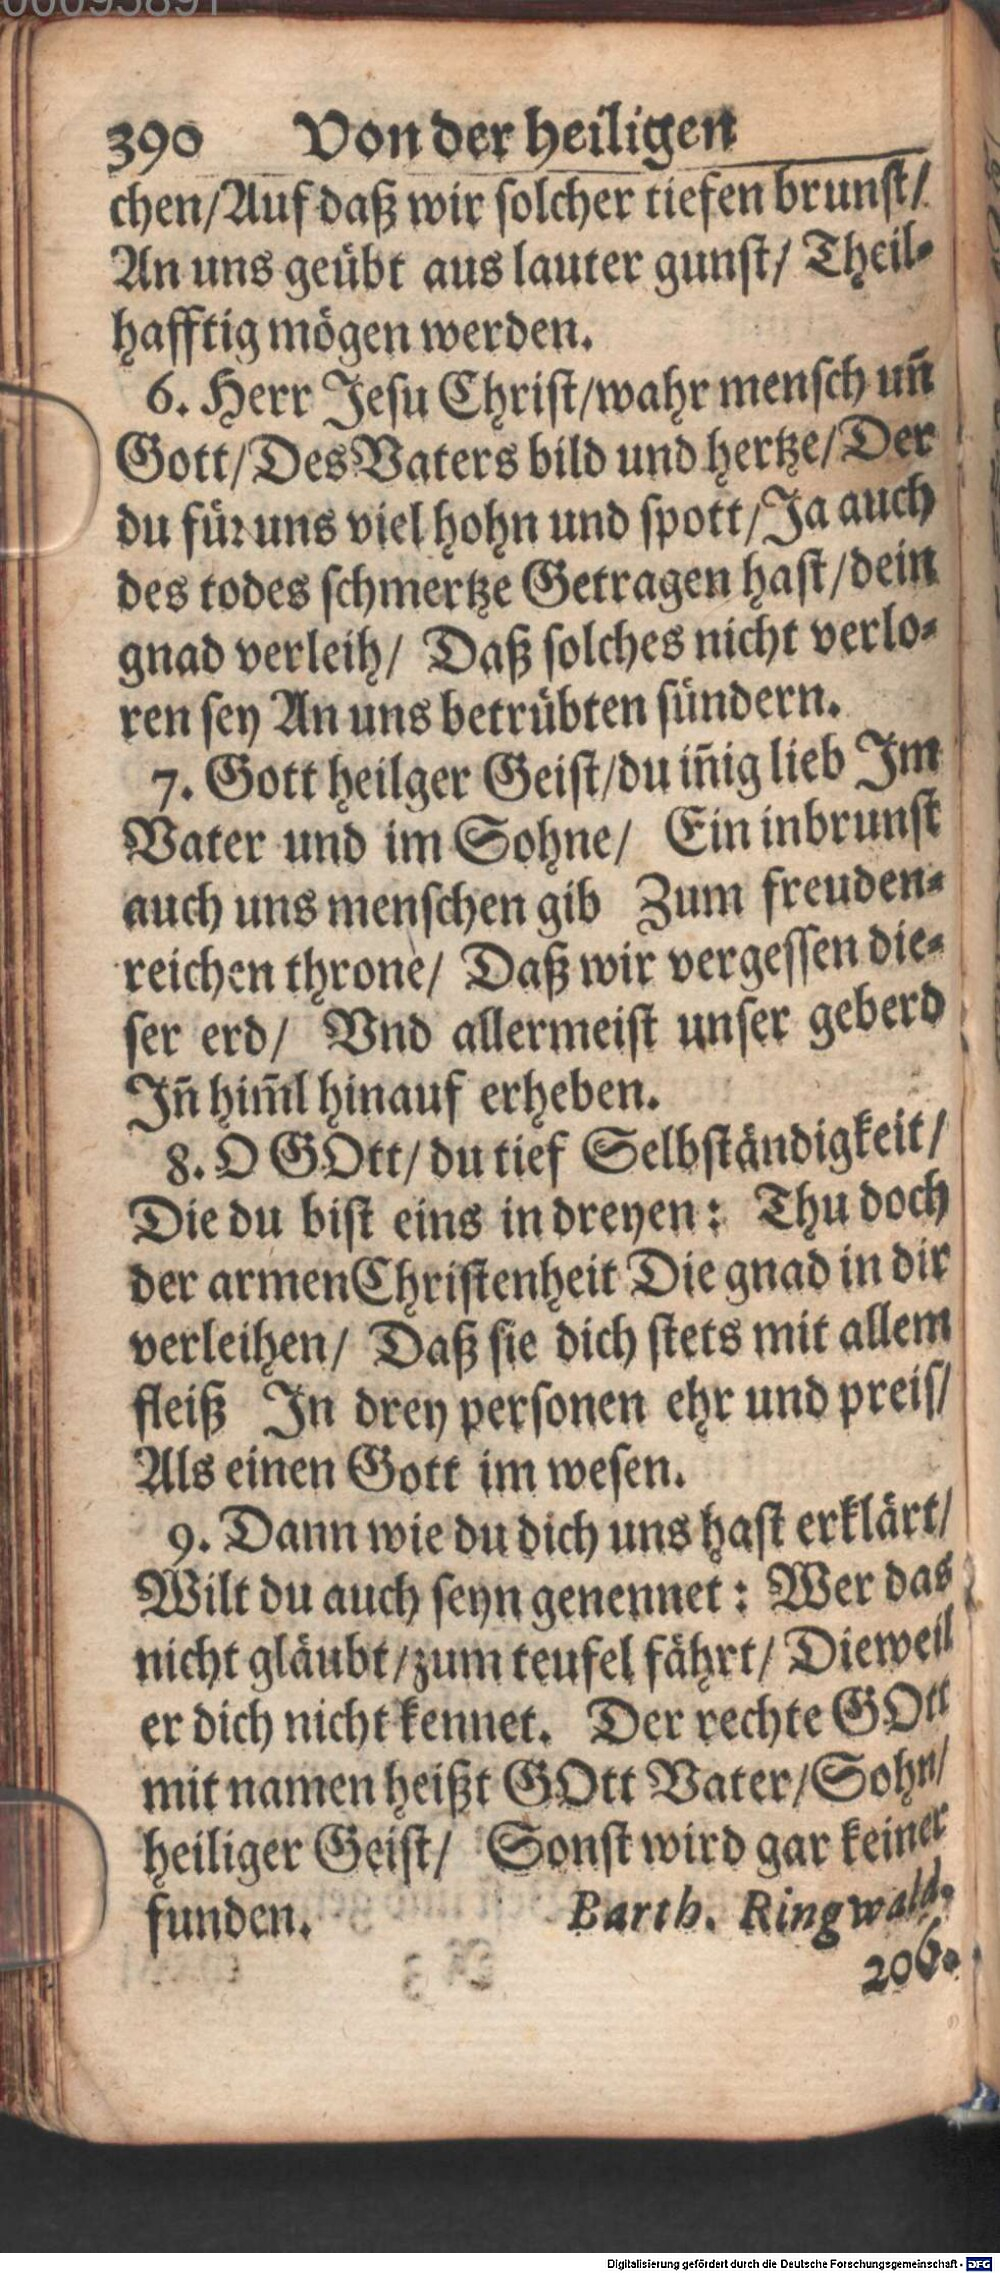 00095891
390 Von der heiligen
chen/Auf daß wir solcher tiefen brunst/
An uns geübt aus lauter gunst/ Theil-
hafftig mögen werden.
6. Herr Jesu Christ/wahr mensch uñ
Gott/Des Vaters bild und hertze/Der
du für uns viel hohn und spott/Ja auch
des todes schmertze Getragen hast/dein
gnad verleih/ Daß solches nicht verlo-
ren sey An uns betrübten sündern.
7. Gott heilger Geist/du iñig lieb Im
Vater und im Sohne/ Ein inbrunst
auch uns menschen gib Zum freuden-
reichen throne/ Daß wir vergessen die-
ser erd/ Vnd allermeist unser geberd
Iñ him̃l hinauf erheben.
8. O GOtt/du tief Selbständigkeit/
Die du bist eins in dreyen: Thu doch
der armen Christenheit Die gnad in dir
verleihen/ Daß sie dich stets mit allem
fleiß In drey personen ehr und preis/
Als einen Gott im wesen.
9. Dann wie du dich uns hast erklärt/
Wilt du auch seyn genennet: Wer das
nicht gläubt/zum teufel fährt/ Dieweil
er dich nicht kennet. Der rechte GOtt
mit namen heißt GOtt Vater/Sohn/
heiliger Geist/ Sonst wird gar keiner
funden. Barth. Ringwald.
206.
Digitalisierung gefördert durch die Deutsche Forschungsgemeinschaft - DFG